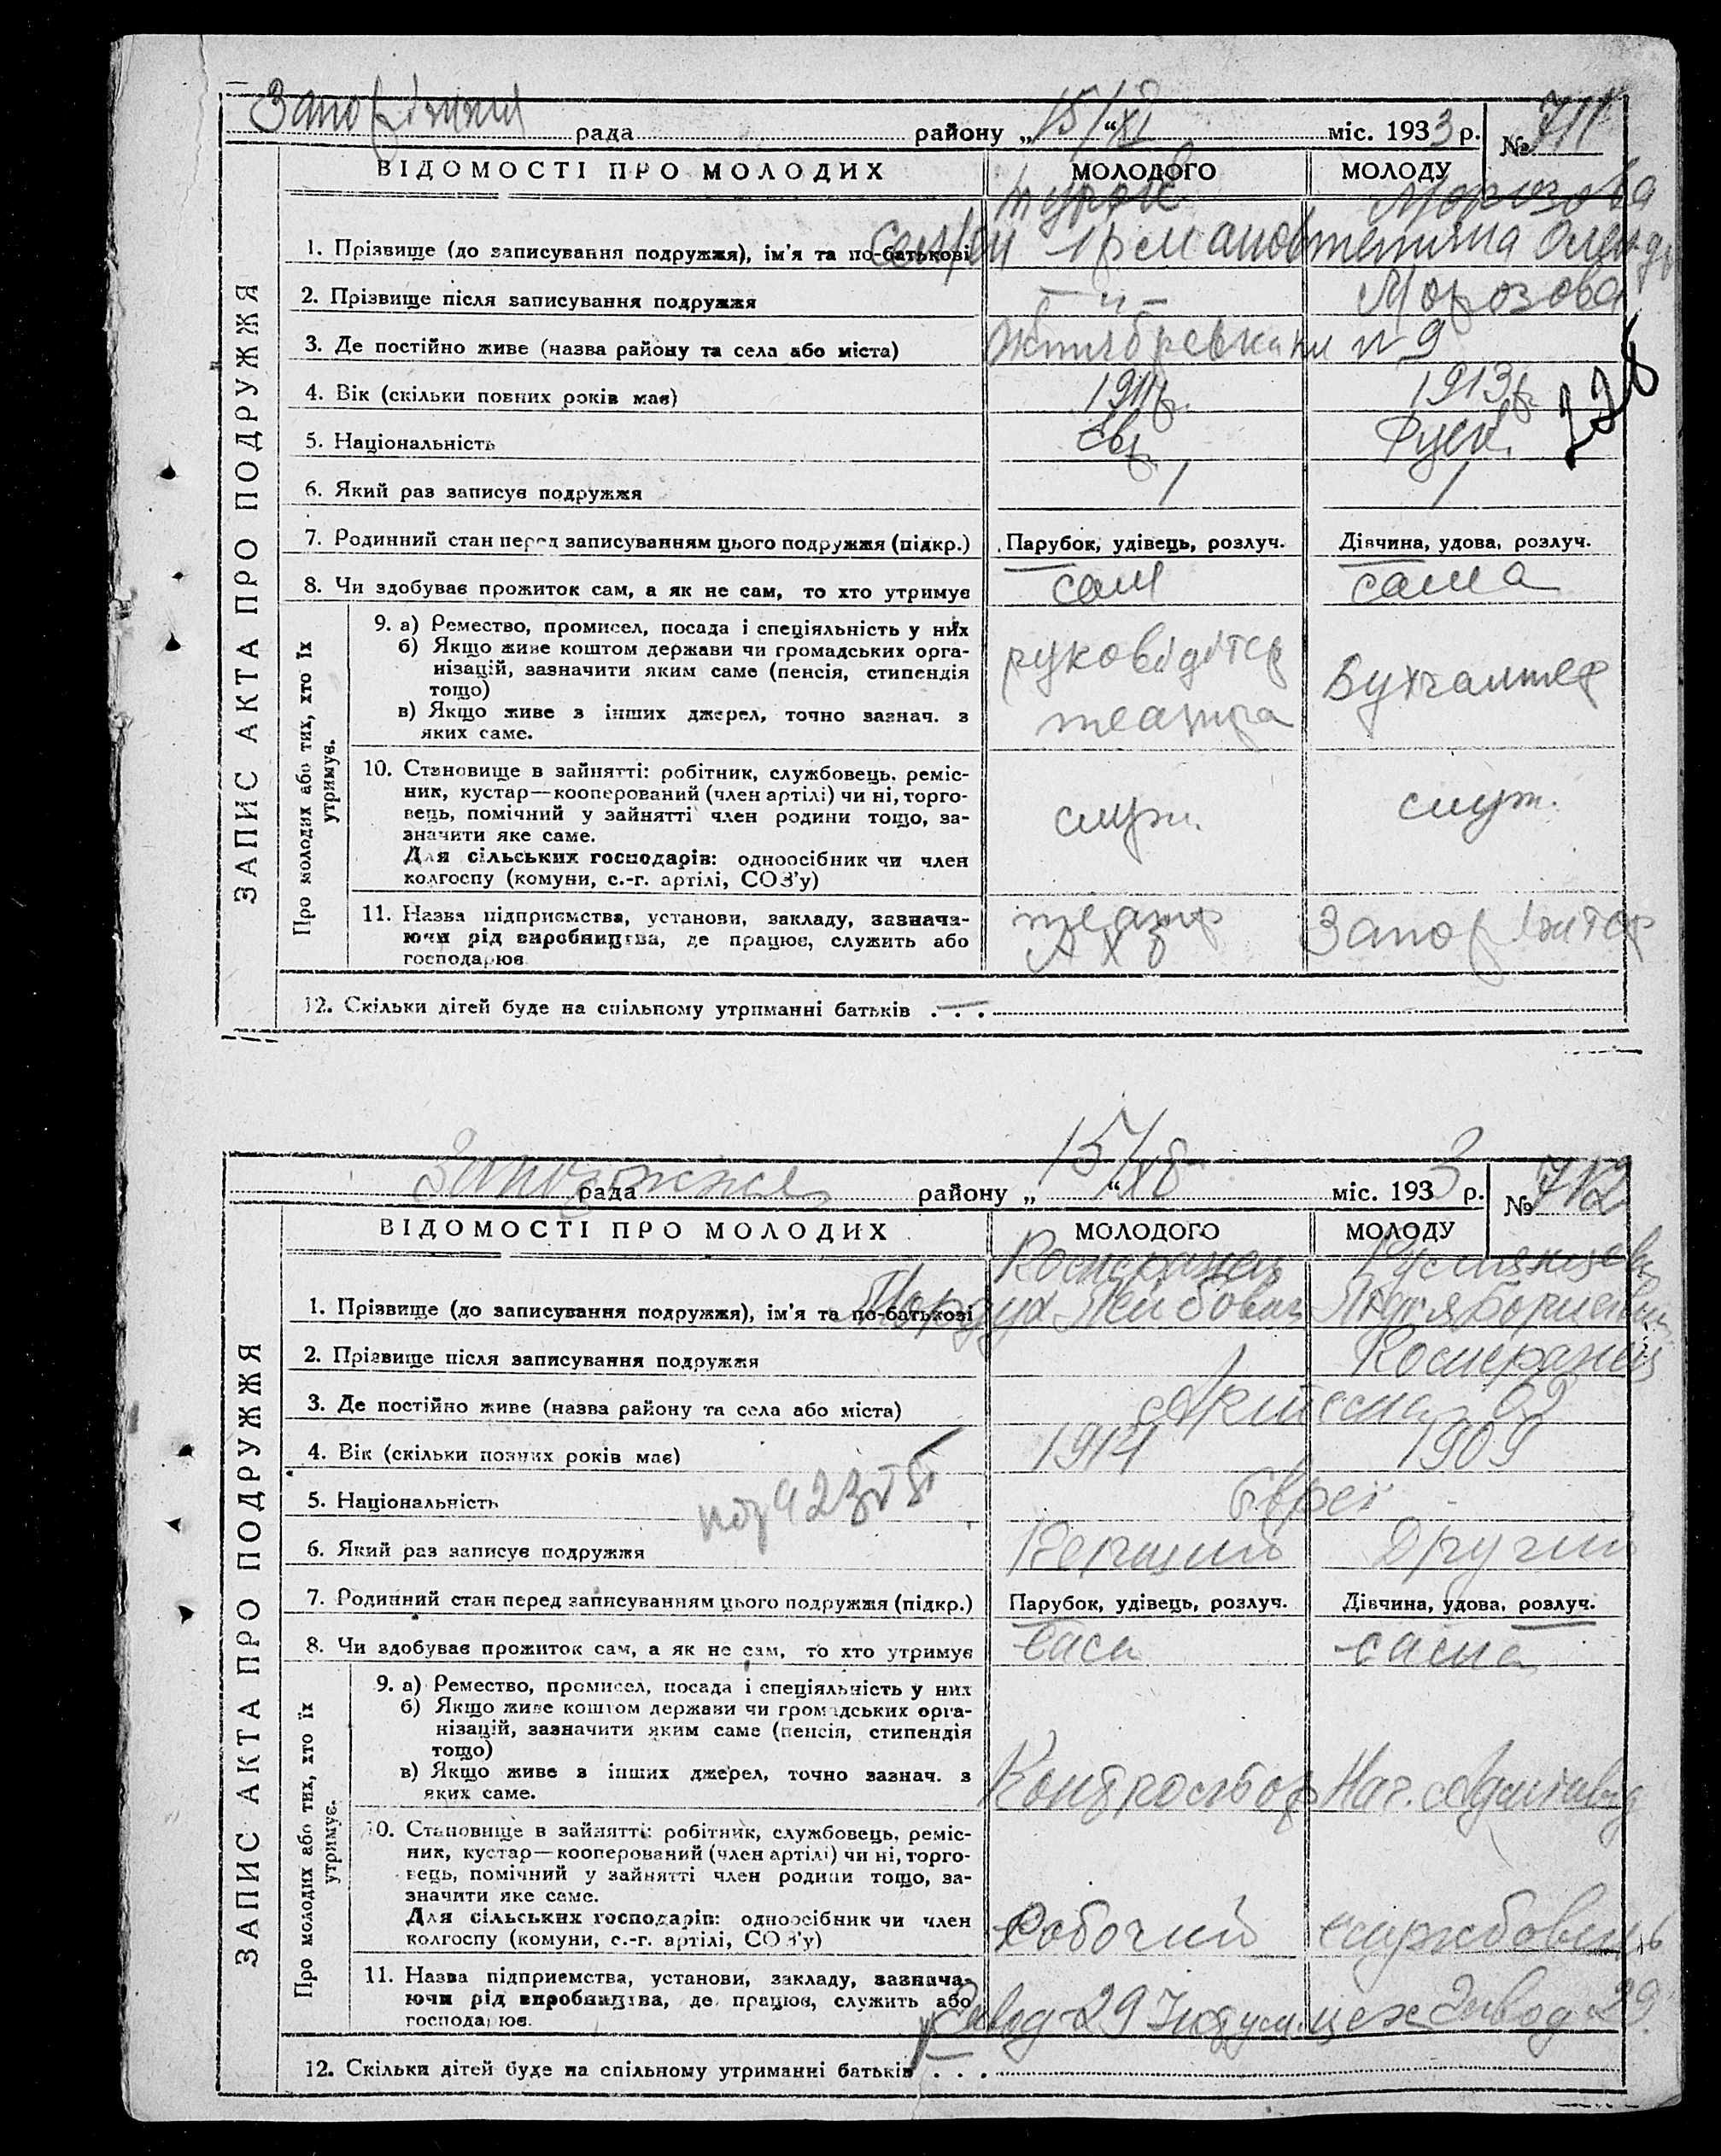 рада району „15/XI“ міс. 1933 р. № 711
ВІДОМОСТІ ПРО МОЛОДИХ МОЛОДОГО МОЛОДУ
Морозова
1. Прізвище (до записування подружжя), ім'я та по-батькові
2. Прізвище після записування подружжя — „ — Морозова
3. Де постійно живе (назва району та села або міста) № 9
4. Вік (скільки повних років має) 1911 р. 1913 р.
5. Національність Євр. Руск.
6. Який раз записує подружжя 1 1
7. Родинний стан перед записуванням цього подружжя (підкр.) Парубок, удівець, розлуч. Дівчина, удова, розлуч.
8. Чи здобуває прожиток сам, а як не сам, то хто утримує сам сама
ЗАПИС АКТА ПРО ПОДРУЖЖЯ
Про молодих або тих, хто їх утримує.
9. а) Ремество, промисел, посада і спеціяльність у них
б) Якщо живе коштом держави чи громадських орга-
нізацій, зазначити яким саме (пенсія, стипендія
тощо)
в) Якщо живе з інших джерел, точно зазнач. з
яких саме.
руковідітер
театра
Бухгалтер
10. Становище в зайнятті: робітник, службовець, реміс-
ник, кустар—кооперований (член артілі) чи ні, торго-
вець, помічний у зайнятті член родини тощо, за-
значити яке саме.
Для сільських господарів: одноосібник чи член
колгоспу (комуни, с.-г. артілі, СОЗ'у)
служ. служ.
11. Назва підприємства, установи, закладу, зазнача-
ючи рід виробництва, де працює, служить або
господарює
театр
12. Скільки дітей буде на спільному утриманні батьків . . . —
Запоріжжя рада району „15/XI“ міс. 1933 р. № 712
ВІДОМОСТІ ПРО МОЛОДИХ МОЛОДОГО МОЛОДУ
1. Прізвище (до записування подружжя), ім'я та по-батькові Мордух Лейбович
2. Прізвище після записування подружжя
3. Де постійно живе (назва району та села або міста)
4. Вік (скільки повних років має) 1914 1909
5. Національність Євреї
6. Який раз записує подружжя Перший Другий
7. Родинний стан перед записуванням цього подружжя (підкр.) Парубок, удівець, розлуч. Дівчина, удова, розлуч.
8. Чи здобуває прожиток сам, а як не сам, то хто утримує сам сама
ЗАПИС АКТА ПРО ПОДРУЖЖЯ
Про молодих або тих, хто їх утримує.
9. а) Ремество, промисел, посада і спеціяльність у них
б) Якщо живе коштом держави чи громадських орга-
нізацій, зазначити яким саме (пенсія, стипендія
тощо)
в) Якщо живе з інших джерел, точно зазнач. з
яких саме.
Нач.
10. Становище в зайнятті: робітник, службовець, реміс-
ник, кустар—кооперований (член артілі) чи ні, торго-
вець, помічний у зайнятті член родини тощо, за-
значити яке саме.
Для сільських господарів: одноосібник чи член
колгоспу (комуни, с.-г. артілі, СОЗ'у)
Робочий службовець
11. Назва підприємства, установи, закладу, зазнача-
ючи рід виробництва, де працює, служить або
господарює.
Завод 29 цех Завод 29
12. Скільки дітей буде на спільному утриманні батьків . . .